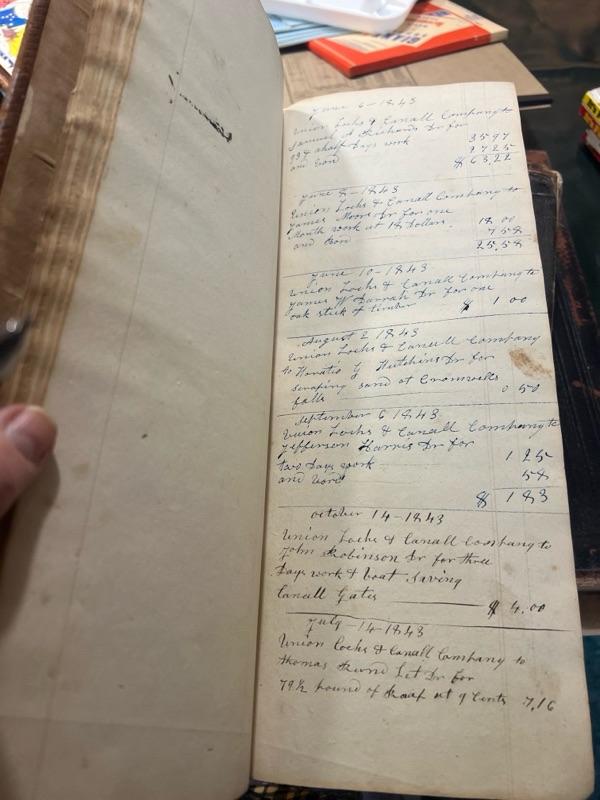 June 6-1843
Union Locks & Canall Company to
Samuel A Richards Dr for
93 & a half Days work 3597
and bord 2725
$ 63,22
June 8-1843
Union Locks & Canall Company to
James Moor Dr for one
Month work at 18 Dollars. 18.00
and Bord 7 58
25,58
June 10-1843
Union Locks & Canall Company to
James W Darrah Dr for one
oak stick of timber $ 1 00
August 2 1843
Union Locks & Canall Company
to Horatio G Hutchins Dr for
scraping sand at Cromwells
falls 0 50
September 6 1843
Union Locks & Canall Company to
Jefferson Harris Dr for
two Days work 1 25
and bord 58
$ 1 83
october 14-1843
Union Locks & Canall Company to
John Robinson Dr for three
Days work & boat saving
Canall Gates $ 4.00
July-14-1843
Union Locks & Canall Company to
thomas Dr for
79½ pound of at 9 Cents 7,16
GIANT